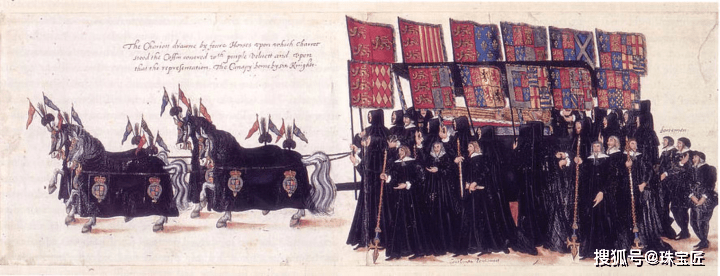 The Chariott drawne by foure Horses upon which Charret
stood the Coffin couered wth purple Veluett and upon
that the representation, The Canapy borne by six Knights
footemen
搜狐号@珠宝匠